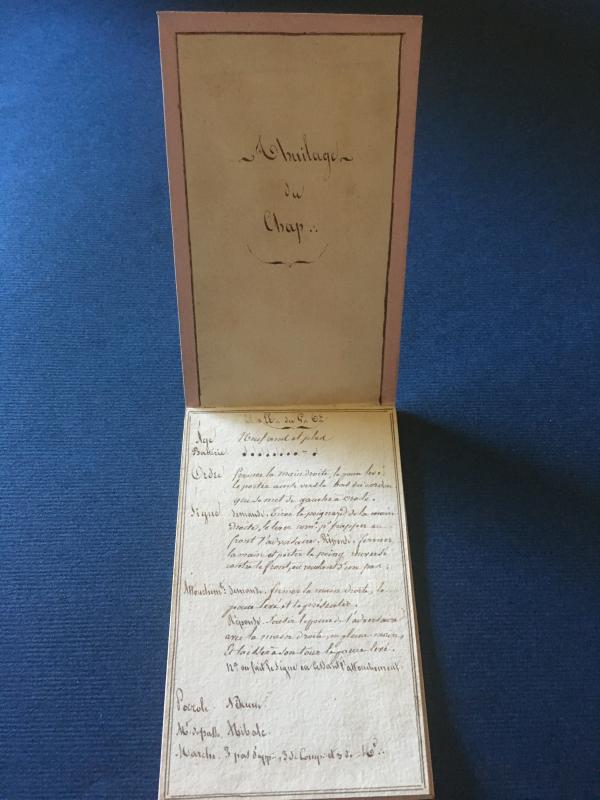 Thuilage
du
Chap∴
Age Neuf ans et plus
Batterie
Ordre fermer la main droite, le pouce levé
le porter ainsi vers le bas du cordon
qui se met de gauche à droite.
Signe demande. tirer le poignard de la main
droite, le lever com. pr frapper au
front l'adversaire. Réponse. fermer
la main et porter le poing renversé
contre le front, en reculant d'un pas.
Attouchemt demande. fermer la main droite, le
pouce levé et le présenter.
Réponse. saisir le pouce de l'adversaire
avec la main droite, en pleine main,
et laisser à son tour le pouce levé.
Na on fait le signe en cessant l'attouchement.
Parole. Nekum
Mt de passe. Abibale
Marche 3 pas d'app∴, 3 de Comp. et 3 de Me∴